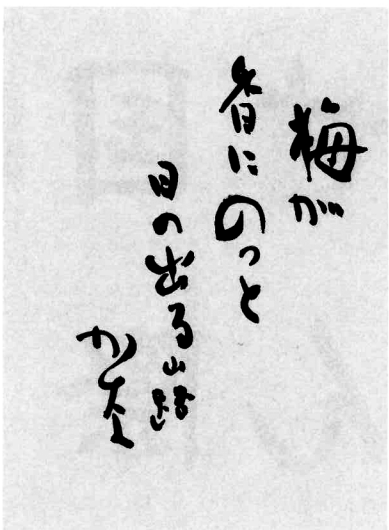 梅が
香にのっと
日の出る山路
かな